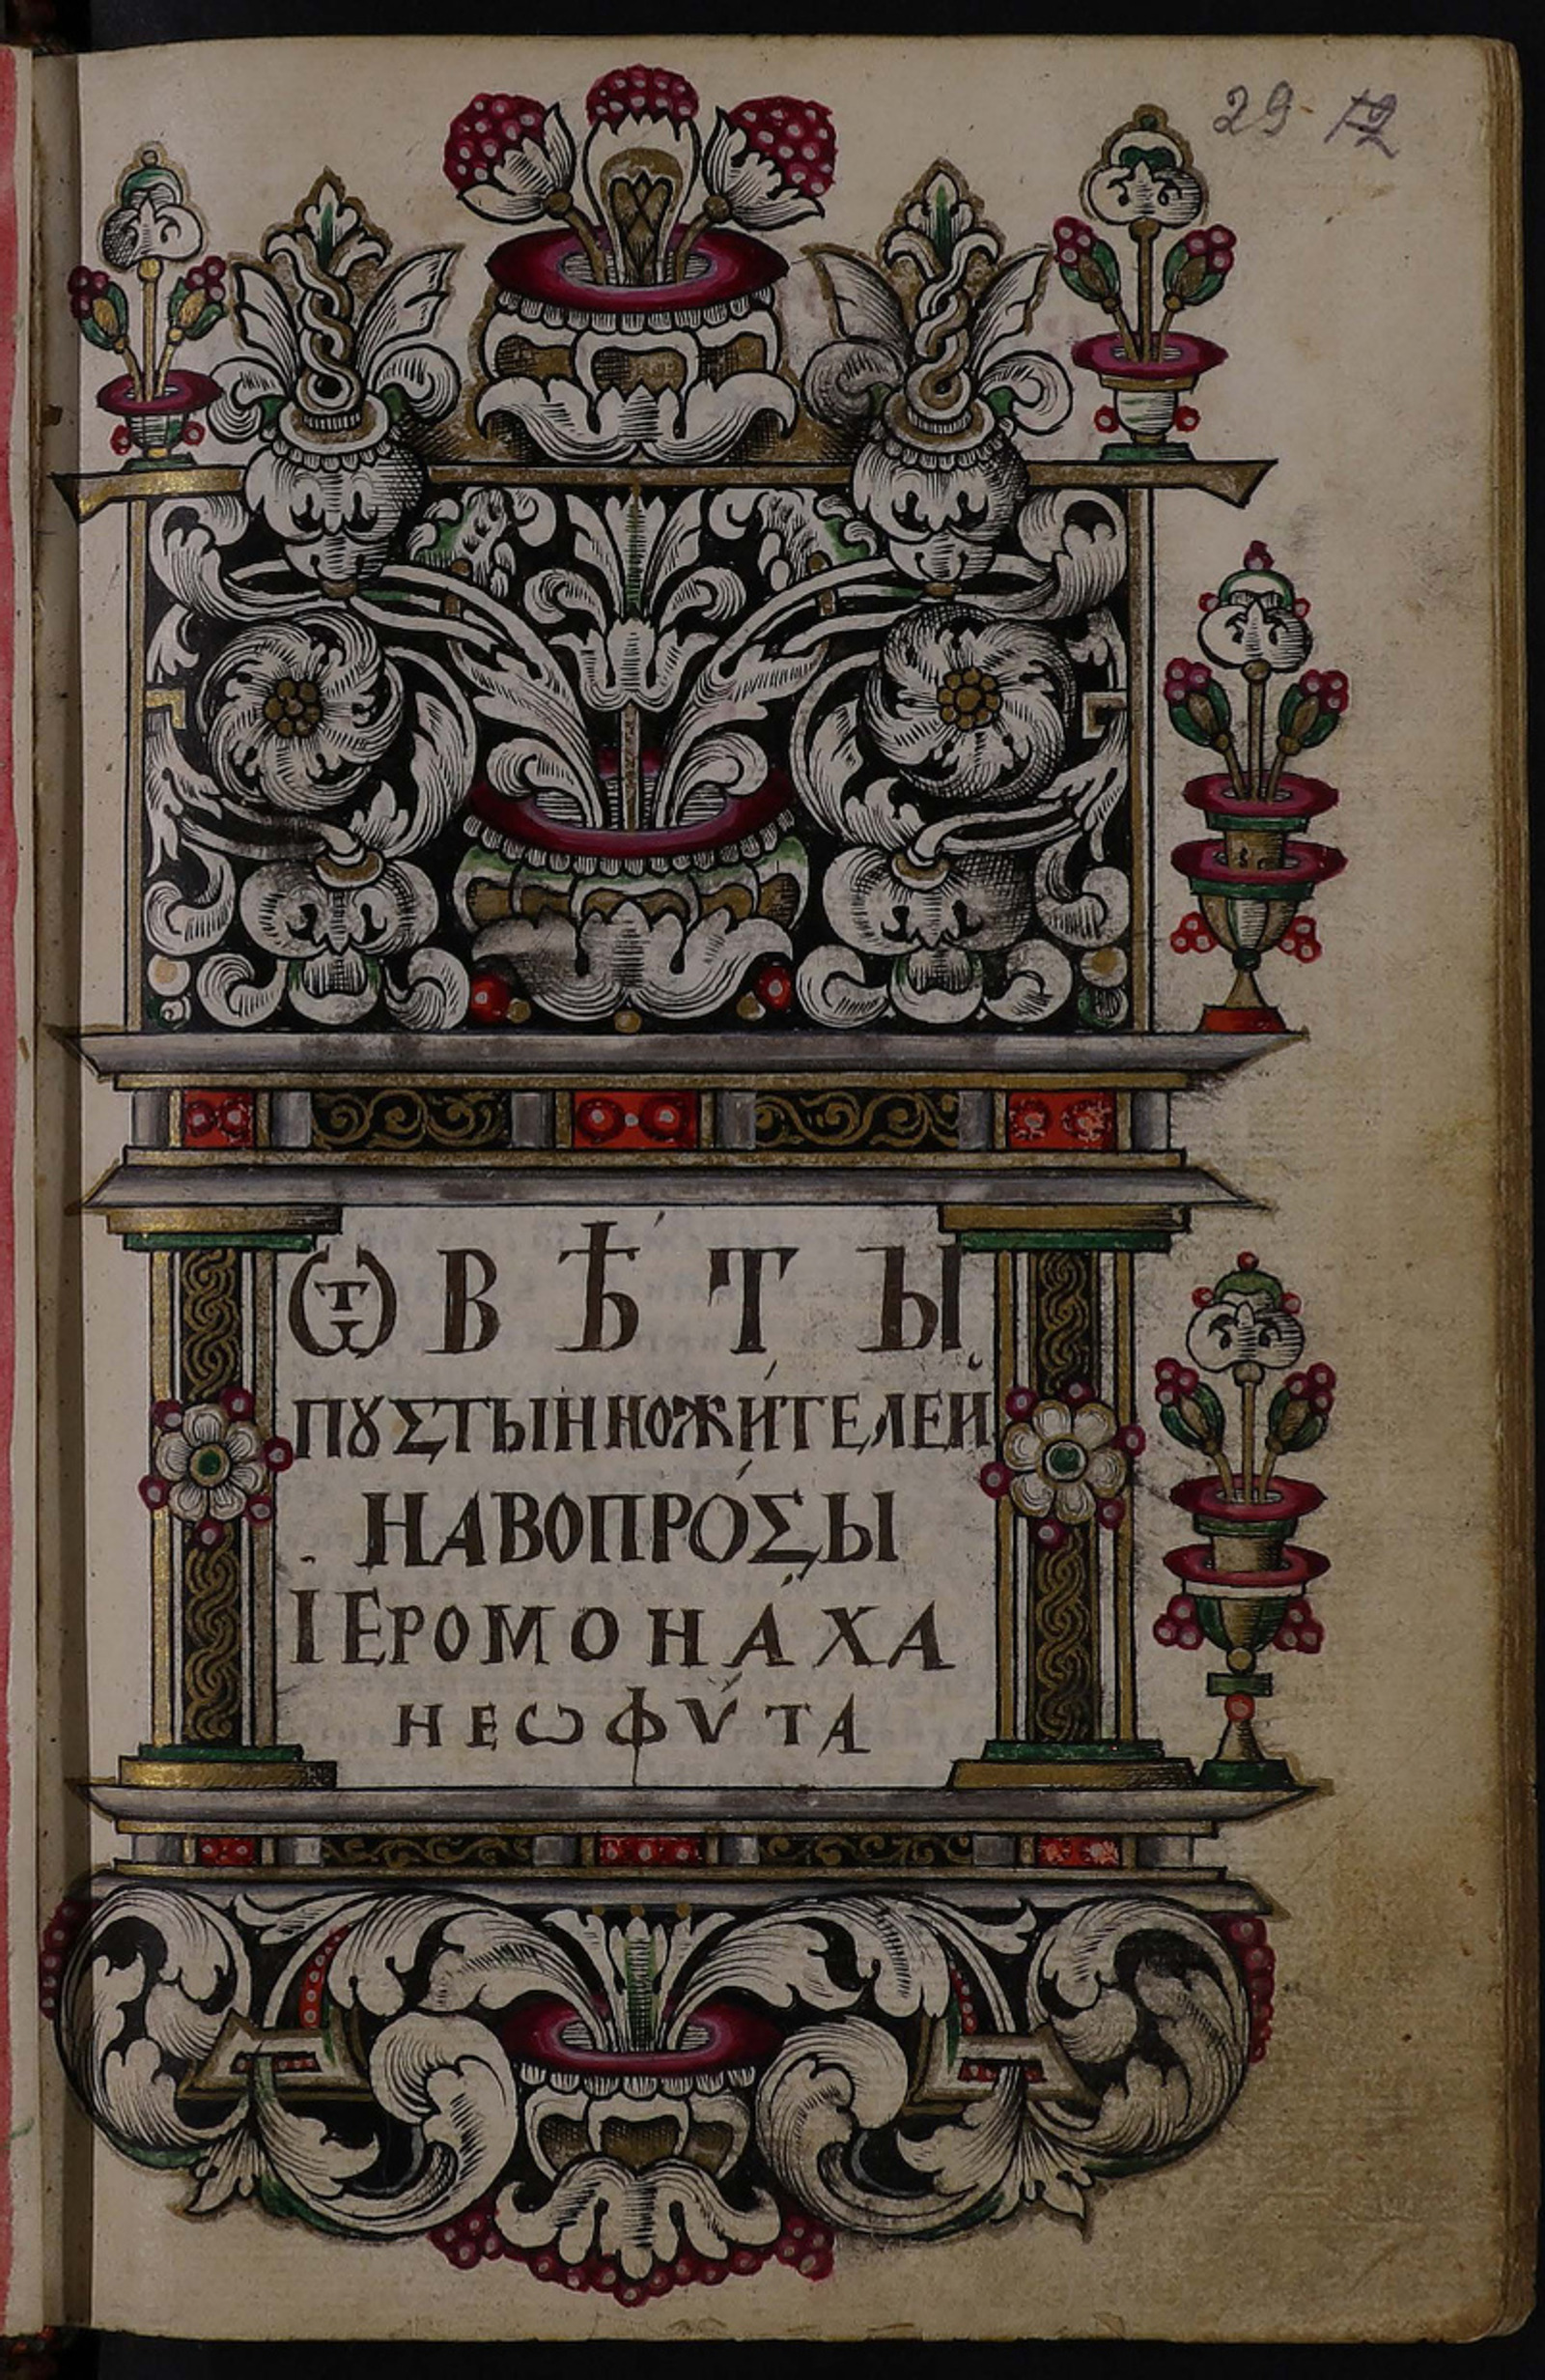 29 12
ѾВѢ́ТЫ
ПꙊСТЫННОЖИ́ТЕЛЕЙ
НАВОПРО́СЫ
ІЕРОМОНА́ХА
НЕѠФѴ́ТА